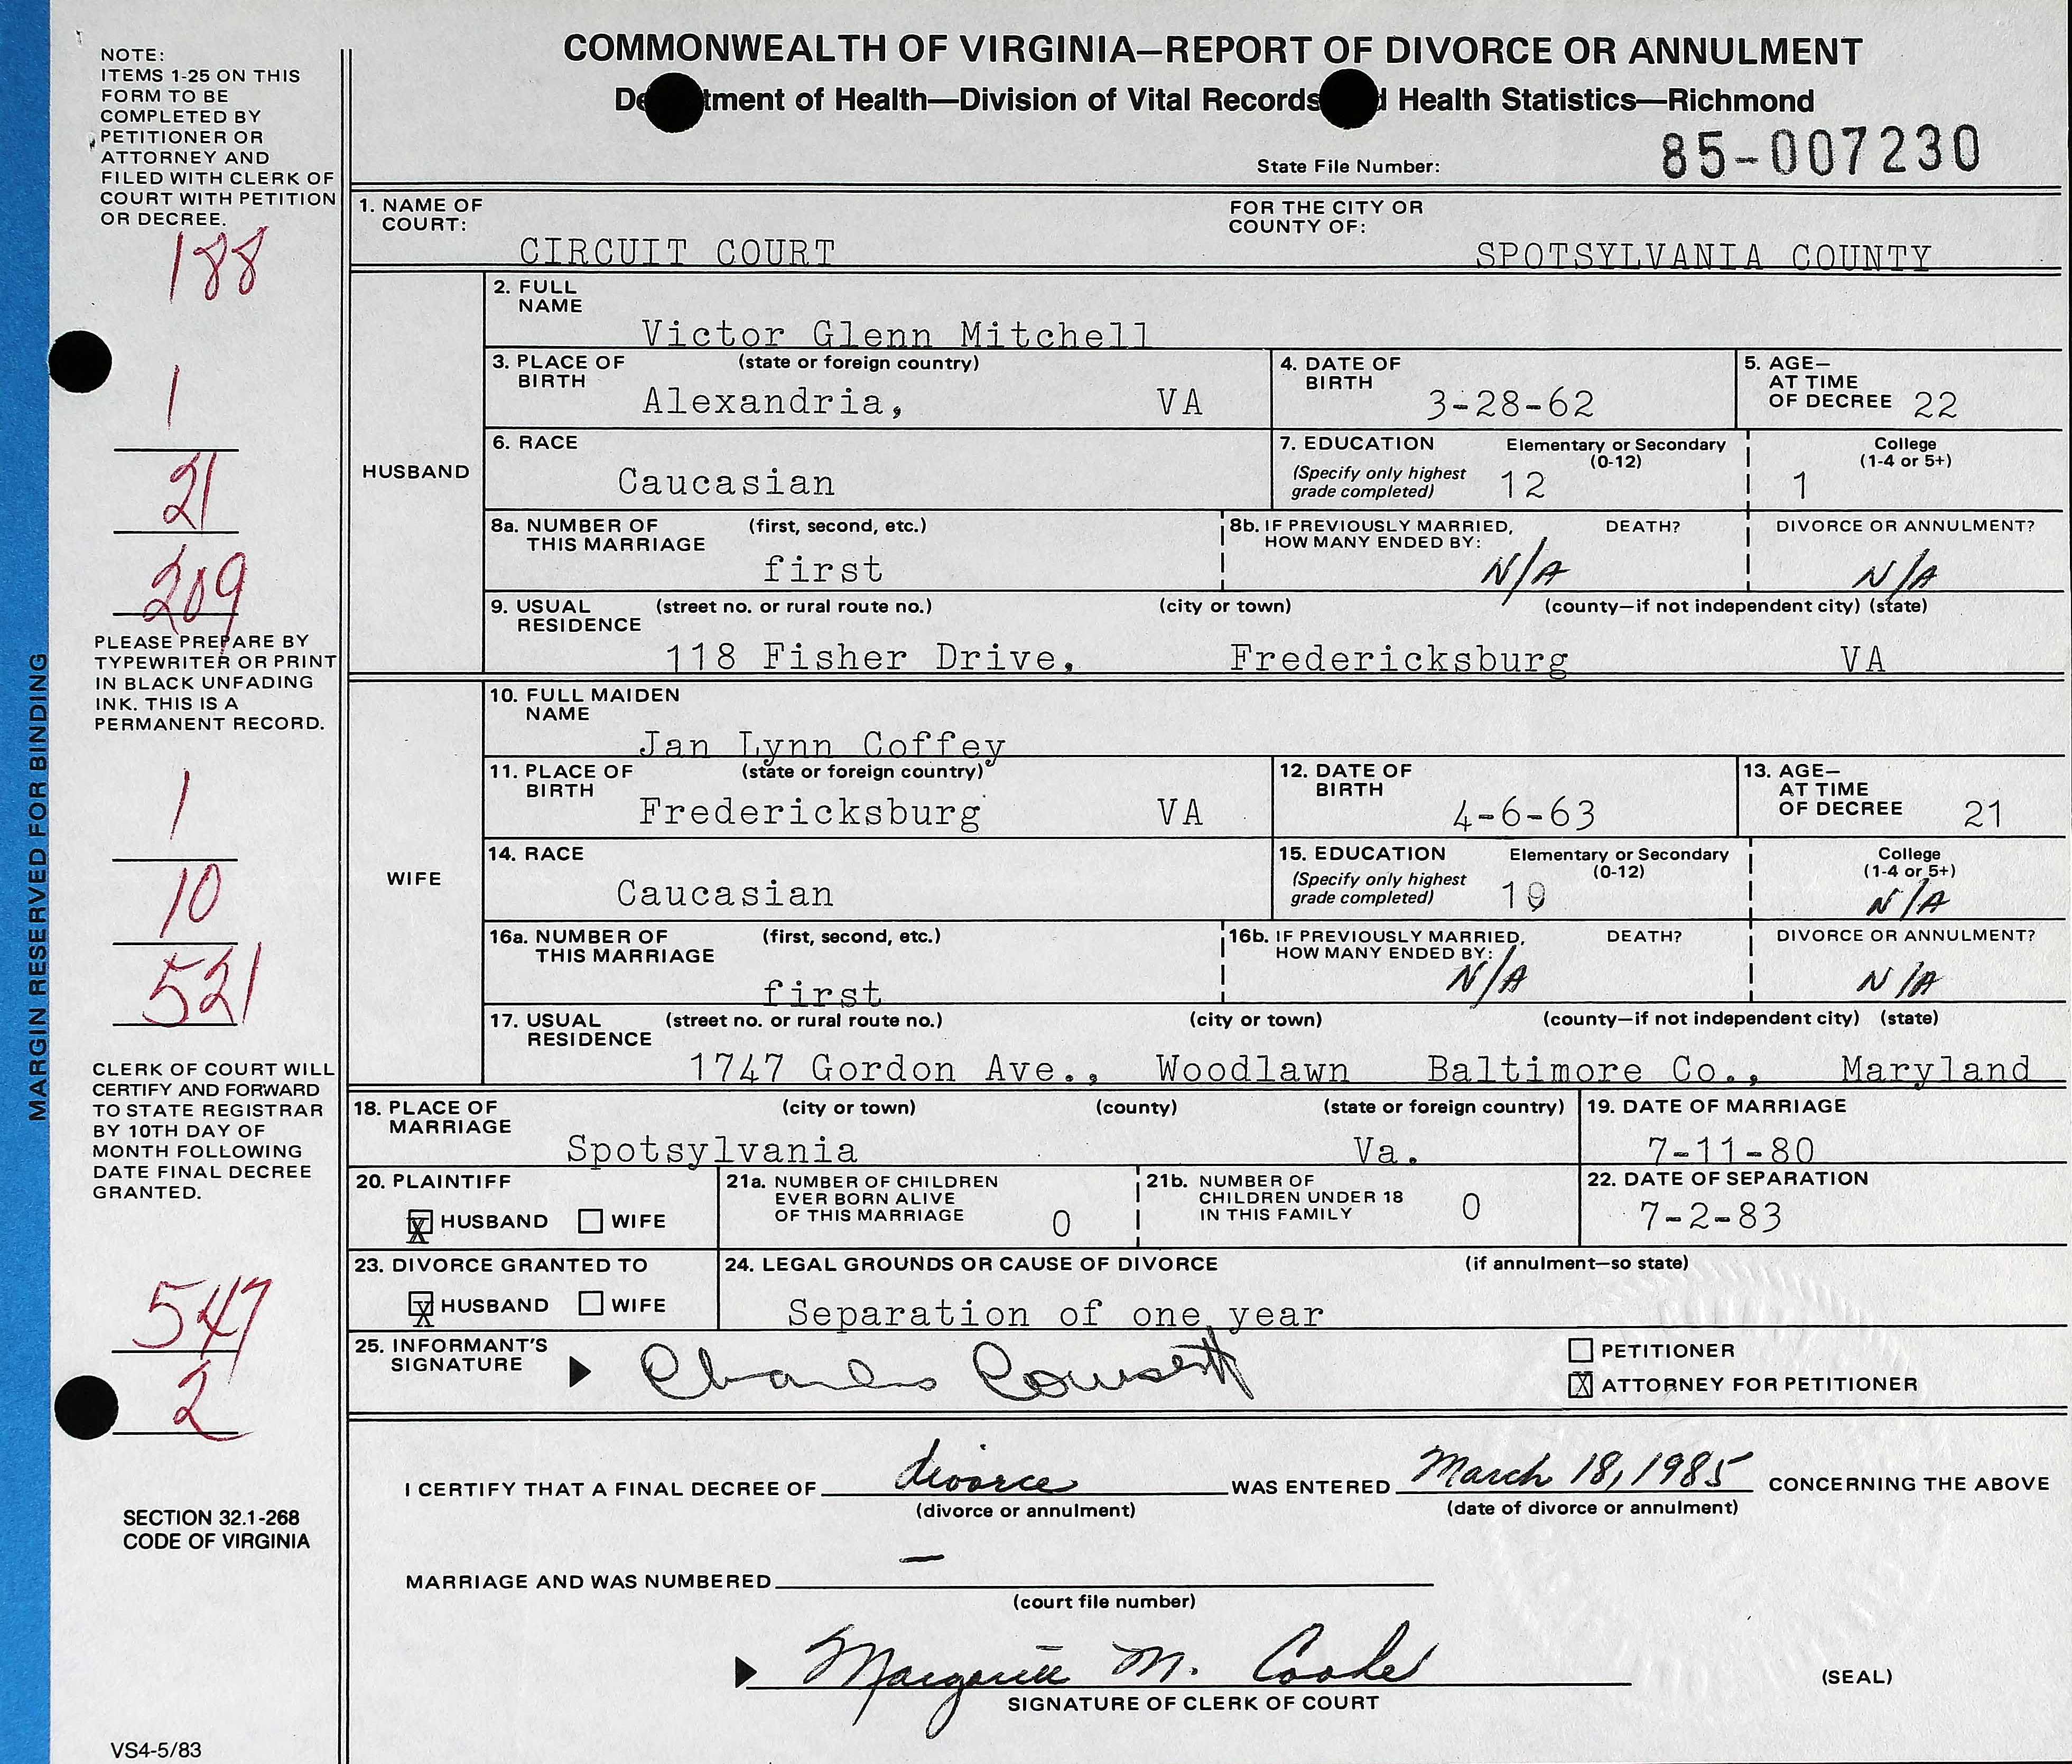 COMMONWEALTH OF VIRGINIA—REPORT OF DIVORCE OR ANNULMENT
De tment of Health—Division of Vital Records d Health Statistics—Richmond
State File Number: 85-007230
NOTE:
ITEMS 1-25 ON THIS
FORM TO BE
COMPLETED BY
PETITIONER OR
ATTORNEY AND
FILED WITH CLERK OF
COURT WITH PETITION
OR DECREE.
188
1
21
209
PLEASE PREPARE BY
TYPEWRITER OR PRINT
IN BLACK UNFADING
INK. THIS IS A
PERMANENT RECORD.
1
10
521
CLERK OF COURT WILL
CERTIFY AND FORWARD
TO STATE REGISTRAR
BY 10TH DAY OF
MONTH FOLLOWING
DATE FINAL DECREE
GRANTED.
547
2
SECTION 32.1-268
CODE OF VIRGINIA
VS4-5/83
MARGIN RESERVED FOR BINDING
1. NAME OF COURT: CIRCUIT COURT
FOR THE CITY OR COUNTY OF: SPOTSYLVANIA COUNTY
HUSBAND
2. FULL NAME
Victor Glenn Mitchell
3. PLACE OF BIRTH (state or foreign country)
Alexandria, VA
4. DATE OF BIRTH 3-28-62
5. AGE— AT TIME OF DECREE 22
6. RACE
Caucasian
7. EDUCATION (Specify only highest grade completed)
Elementary or Secondary (0-12) 12
College (1-4 or 5+) 1
8a. NUMBER OF THIS MARRIAGE (first, second, etc.)
first
8b. IF PREVIOUSLY MARRIED, HOW MANY ENDED BY: DEATH? N/A
DIVORCE OR ANNULMENT? N/A
9. USUAL RESIDENCE (street no. or rural route no.) (city or town) (county—if not independent city) (state)
118 Fisher Drive, Fredericksburg VA
WIFE
10. FULL MAIDEN NAME
Jan Lynn Coffey
11. PLACE OF BIRTH (state or foreign country)
Fredericksburg VA
12. DATE OF BIRTH 4-6-63
13. AGE— AT TIME OF DECREE 21
14. RACE
Caucasian
15. EDUCATION (Specify only highest grade completed)
Elementary or Secondary (0-12)
College (1-4 or 5+) N/A
16a. NUMBER OF THIS MARRIAGE (first, second, etc.)
first
16b. IF PREVIOUSLY MARRIED, HOW MANY ENDED BY: DEATH? N/A
DIVORCE OR ANNULMENT? N/A
17. USUAL RESIDENCE (street no. or rural route no.) (city or town) (county—if not independent city) (state)
1747 Gordon Ave., Woodlawn Baltimore Co., Maryland
18. PLACE OF MARRIAGE (city or town) (county) (state or foreign country)
Spotsylvania Va.
19. DATE OF MARRIAGE
7-11-80
20. PLAINTIFF
X HUSBAND WIFE
21a. NUMBER OF CHILDREN EVER BORN ALIVE OF THIS MARRIAGE 0
21b. NUMBER OF CHILDREN UNDER 18 IN THIS FAMILY 0
22. DATE OF SEPARATION
7-2-83
23. DIVORCE GRANTED TO
X HUSBAND WIFE
24. LEGAL GROUNDS OR CAUSE OF DIVORCE (if annulment—so state)
Separation of one year
25. INFORMANT'S SIGNATURE Charles
PETITIONER
X ATTORNEY FOR PETITIONER
I CERTIFY THAT A FINAL DECREE OF divorce WAS ENTERED March 18, 1985 CONCERNING THE ABOVE
(divorce or annulment) (date of divorce or annulment)
MARRIAGE AND WAS NUMBERED —
(court file number)
M. Cooke
SIGNATURE OF CLERK OF COURT
(SEAL)